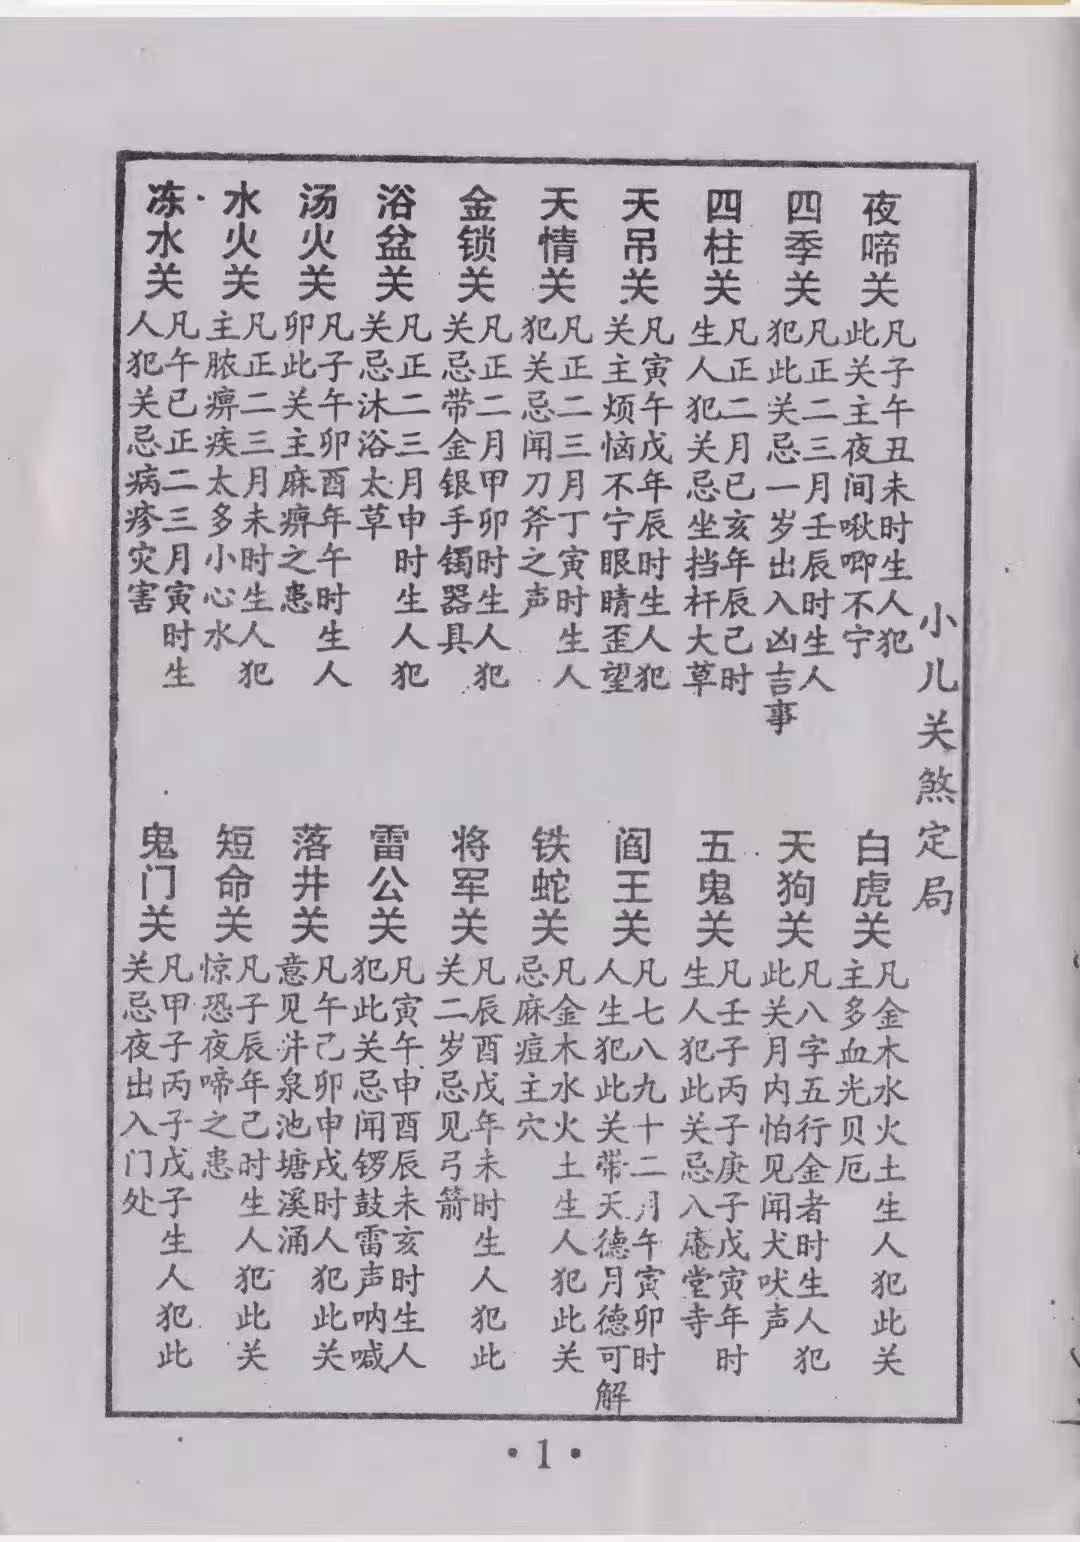 小儿关煞定局
夜啼关
凡子午丑未时生人犯
此关主夜间啾唧不宁
四季关
凡正二三月壬辰时生人
犯此关忌一岁出入凶吉事
四柱关
凡正二月巳亥年辰己时
生人犯关忌坐挡杆大草
天吊关
凡寅午戊年辰时生人犯
关主烦恼不宁眼睛歪望
天情关
凡正二三月丁寅时生人
犯关忌闻刀斧之声
金锁关
凡正二月甲卯时生人犯
关忌带金银手镯器具
浴盆关
凡正二三月申时生人犯
关忌沐浴太草
汤火关
凡子午卯酉年午时生人
卯此关主麻痹之患
水火关
凡正二三月未时生人犯
主脓痹疾太多小心水
冻水关
凡午己正二三月寅时生
人犯关忌病疹灾害
白虎关
凡金木水火土生人犯此关
主多血光贝厄
天狗关
凡八字五行金者时生人犯
此关月内怕见闻犬吠声
五鬼关
凡壬子丙子庚子戊寅年时
生人犯此关忌入庵堂寺
阎王关
凡七八九十二月午寅卯时
人生犯此关带天德月德可解
铁蛇关
凡金木水火土生人犯此关
忌麻痘主穴
将军关
凡辰酉戊年未时生人犯此
关二岁忌见弓箭
雷公关
凡寅午申酉辰未亥时生人
犯此关忌闻锣鼓雷声呐喊
落井关
凡午己卯申戌时人犯此关
意见井泉池塘溪涌
短命关
凡子辰年己时生人犯此关
惊恐夜啼之患
鬼门关
凡甲子丙子戊子生人犯此
关忌夜出入门处
·1·